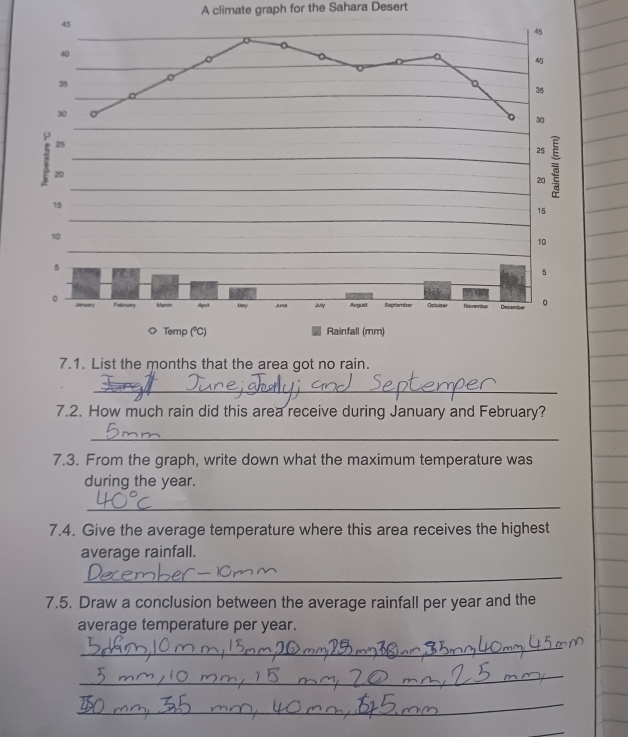 A climate graph for the Sahara Desert
45
40
35
30
25
20
15
10
5
0
Temperature °C
45
40
35
30
25
20
15
10
5
0
Rainfall (mm)
January February March April May June July August September October November December
Temp (°C) Rainfall (mm)
7.1. List the months that the area got no rain.
June, July, and Septemper
7.2. How much rain did this area receive during January and February?
5mm
7.3. From the graph, write down what the maximum temperature was
during the year.
40°C
7.4. Give the average temperature where this area receives the highest
average rainfall.
December - 10mm
7.5. Draw a conclusion between the average rainfall per year and the
average temperature per year.
5 mm, 10 mm, 15mm, 20 mm, 25 mm, 30 mm, 35mm, 40mm, 45mm
5 mm, 10 mm, 15 mm, 20 mm, 25 mm,
30 mm, 35 mm, 40mm, 45 mm